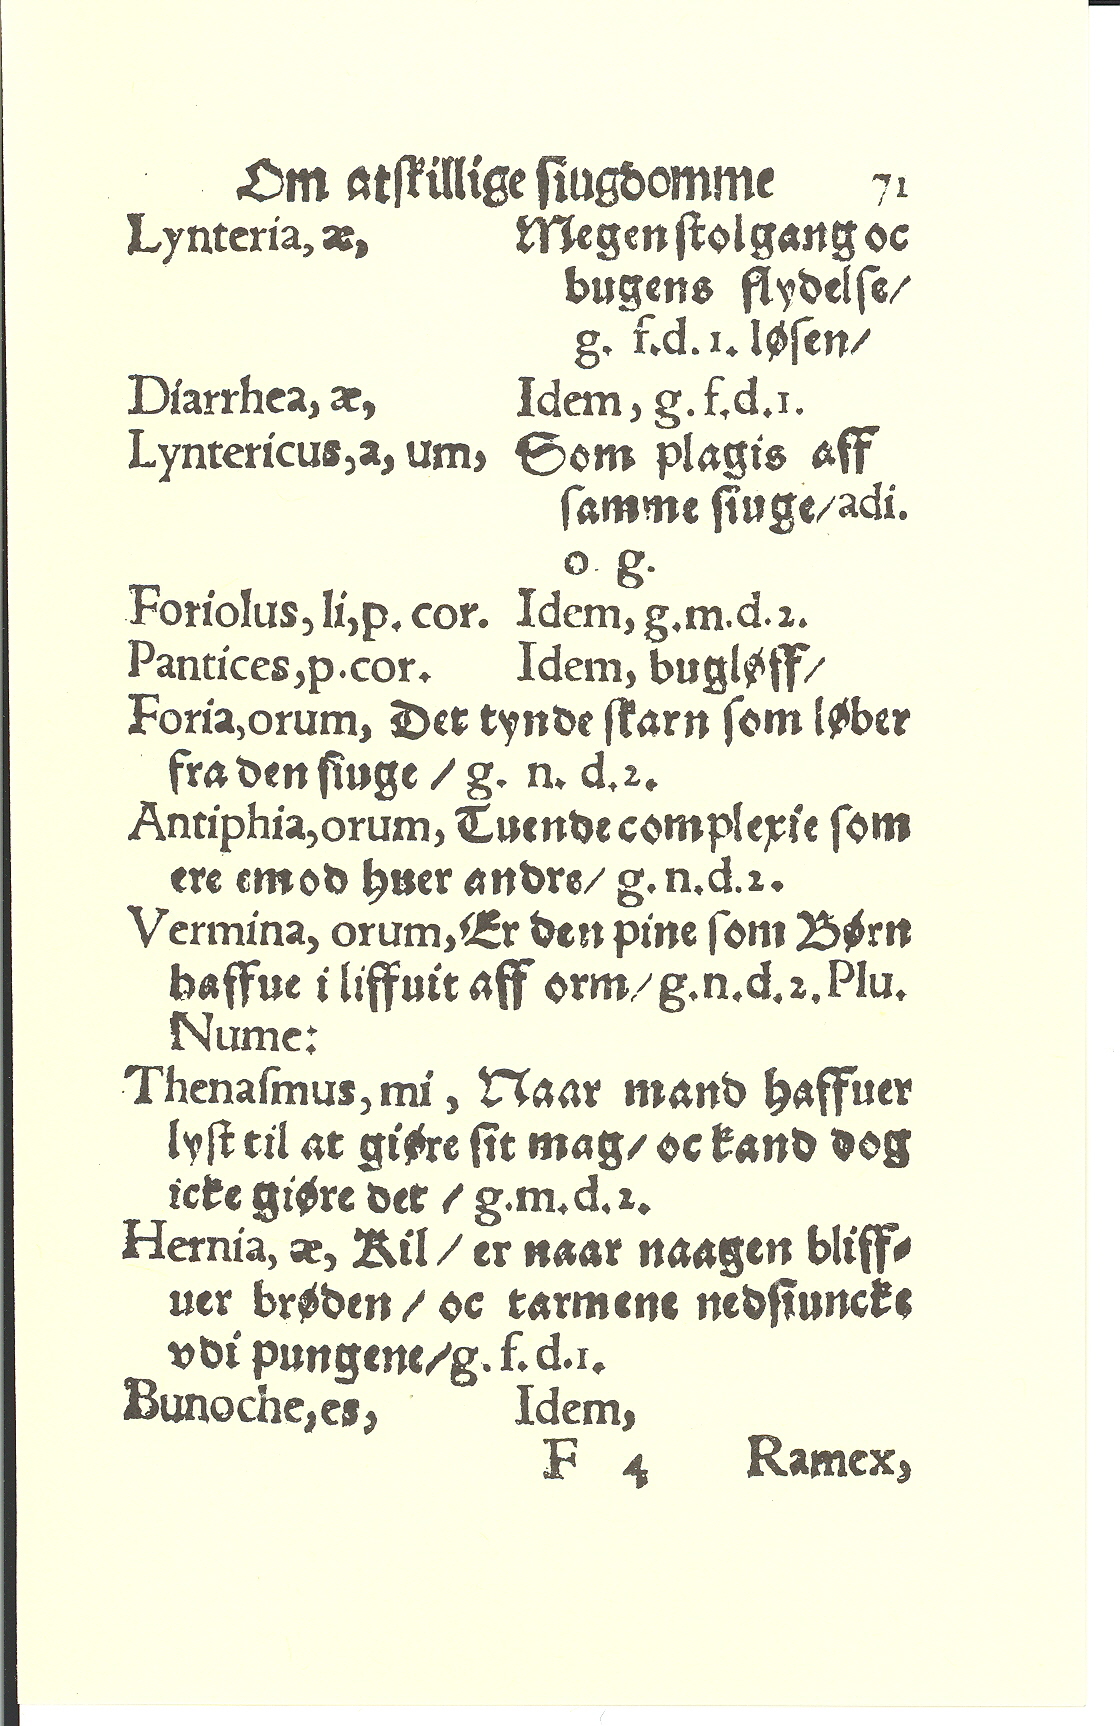 Om atſkillige ſiugdomme 71
Lynteria, æ, Megen ſtolgang oc
bugens flydelſe/
g. f.d.1. løſen/
Diarrhea, æ, Idem, g.f.d.1.
Lyntericus,a, um, Som plagis aff
ſamme ſiuge/adi.
o g.
Foriolus, li,p. cor. Idem, g.m.d.2.
Pantices,p.cor. Idem, bugløff/
Foria,orum, Det tynde ſkarn som løber
fra den ſiuge / g. n. d.2.
Antiphia,orum, Tuende complexie ſom
ere emod huer andre/ g.n.d.2.
Vermina, orum, Er den pine ſom Børn
haffue i liffuit aff orm/g.n.d.2.Plu.
Nume:
Thenaſmus, mi, Naar mand haffuer
lyſt til at giøre ſit mag/ oc kand dog
icke giøre det / g.m.d.2.
Hernia, æ, Kil / er naar naagen bliff⸗
uer brøden / oc tarmene nedſiuncke
vdi pungene/g.f.d.1.
Bunoche,es, Idem,
F 4 Ramex,